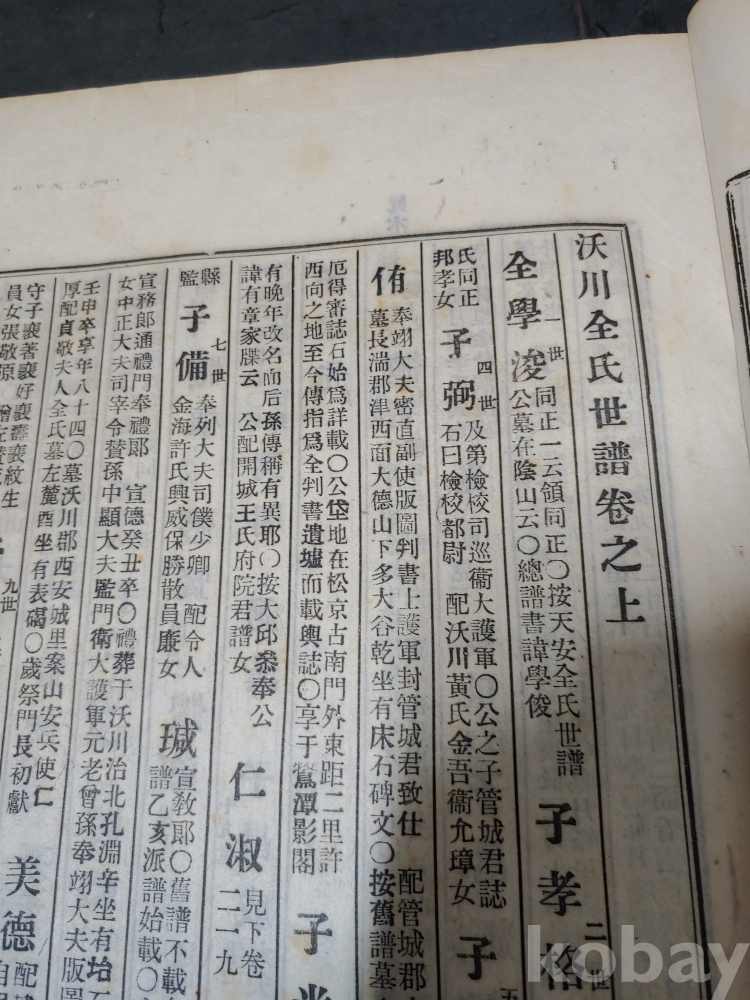 沃川全氏世譜卷之上
全學浚 一世 同正一云領同正○按天安全氏世譜
公墓在陰山云○總譜書諱學俊
子孝格 二世
氏同正
邦孝女
子弼 四世 及第檢校司巡衞大護軍○公之子管城君誌
石曰檢校都尉 配沃川黃氏金吾衞允璋女
子 五
侑 奉翊大夫密直副使版圖判書上護軍封管城君致仕 配管城郡
墓長湍郡津西面大德山下多大谷乾坐有床石碑文○按舊譜墓
厄得審誌石始爲詳載○公垈地在松京古南門外東距二里許
西向之地至今傳指爲全判書遺墟而載輿誌○享于鷲潭影閣
子
有晚年改名而后孫傳稱有異耶○按大邱忝奉公
諱有章家牒云 公配開城王氏府院君譜女
仁淑 見下卷
二一九
縣
監
子備 七世 奉列大夫司僕少卿 配令人
金海許氏興威保勝散員廉女
瑊 宣敎郞○舊譜不載
譜乙亥派譜始載○
宣務郎通禮門奉禮郞 宣德癸丑卒○禮葬于沃川治北孔淵辛坐有坮石
女中正大夫司宰令賛孫中顯大夫監門衛大護軍元老曾孫奉翊大夫版圖
壬申卒享年八十四○墓沃川郡西安城里案山安兵使仁
厚配貞敬夫人全氏墓左麓酉坐有表碣○歲祭門長初獻
美德 配
自
守子襄著襄好襄壽襄紋生
員女張敬原
九世
kobay